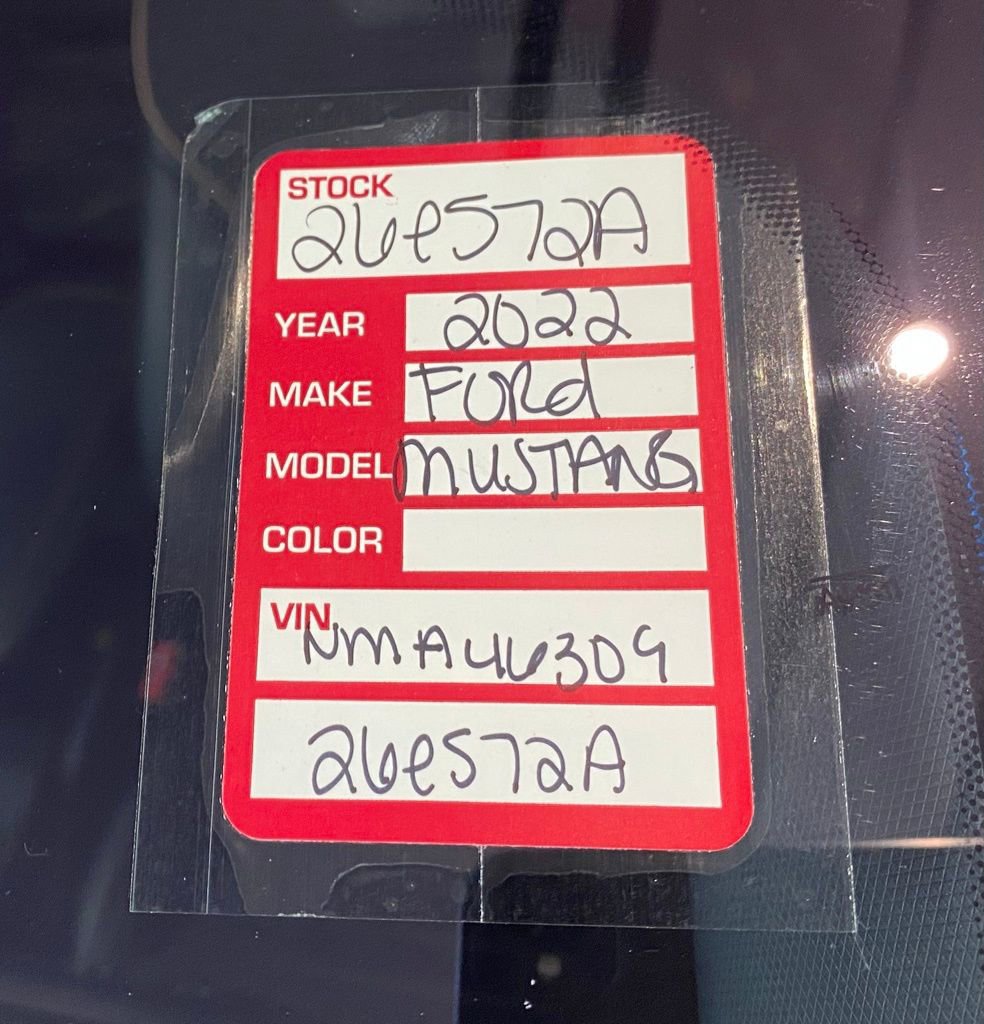 STOCK
26e572A
YEAR 2022
MAKE FORd
MODEL MUSTANG
COLOR
VIN
NMA46309
26e572A